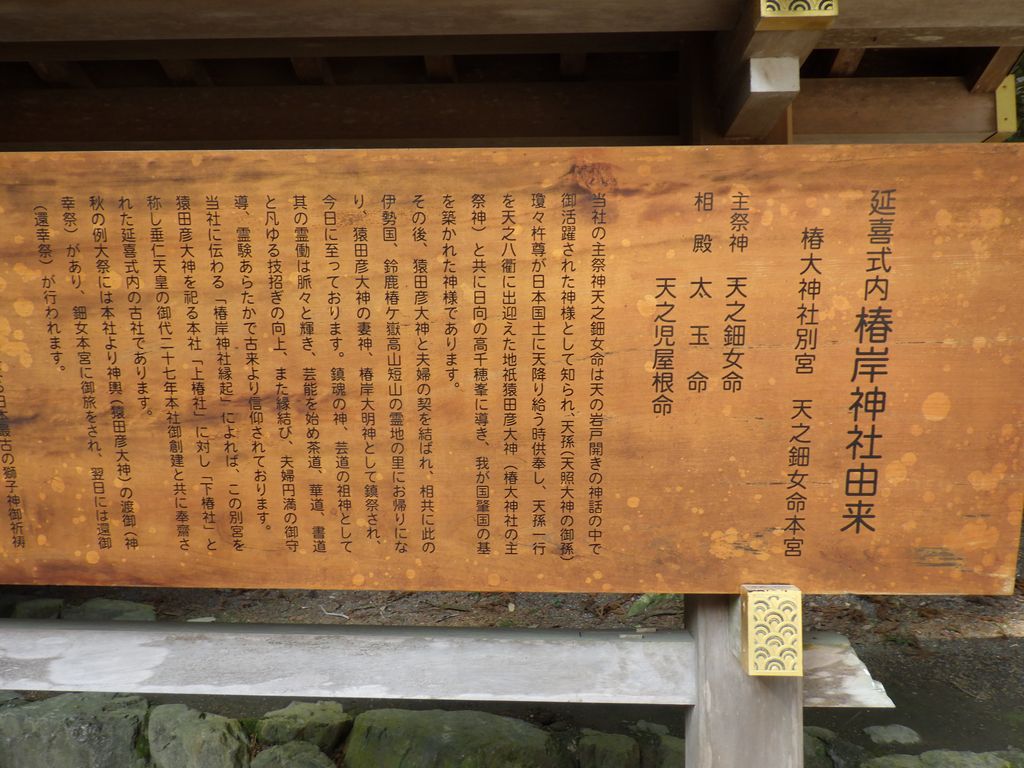 延喜式内椿岸神社由来
椿大神社別宮　天之鈿女命本宮
主祭神　天之鈿女命
相殿　太玉命
天之児屋根命
当社の主祭神天之鈿女命は天の岩戸開きの神話の中で
御活躍された神様として知られ、天孫(天照大神の御孫)
瓊々杵尊が日本国土に天降り給う時供奉し、天孫一行
を天之八衢に出迎えた地祇猿田彦大神（椿大神社の主
祭神）と共に日向の高千穂峯に導き、我が国肇国の基
を築かれた神様であります。
その後、猿田彦大神と夫婦の契を結ばれ、相共に此の
伊勢国、鈴鹿椿ケ嶽高山短山の霊地の里にお帰りにな
り、猿田彦大神の妻神、椿岸大明神として鎮祭され、
今日に至っております。鎮魂の神、芸道の祖神として
其の霊働は脈々と輝き、芸能を始め茶道、華道、書道
と凡ゆる技招ぎの向上、また縁結び、夫婦円満の御守
導、霊験あらたかで古来より信仰されております。
当社に伝わる「椿岸神社縁起」によれば、この別宮を
猿田彦大神を祀る本社「上椿社」に対し「下椿社」と
称し垂仁天皇の御代二十七年本社御創建と共に奉斎さ
れた延喜式内の古社であります。
秋の例大祭には本社より神輿（猿田彦大神）の渡御（神
幸祭）があり、鈿女本宮に御旅をされ、翌日には還御
（還幸祭）が行われます。
日本最古の獅子神御祈祷